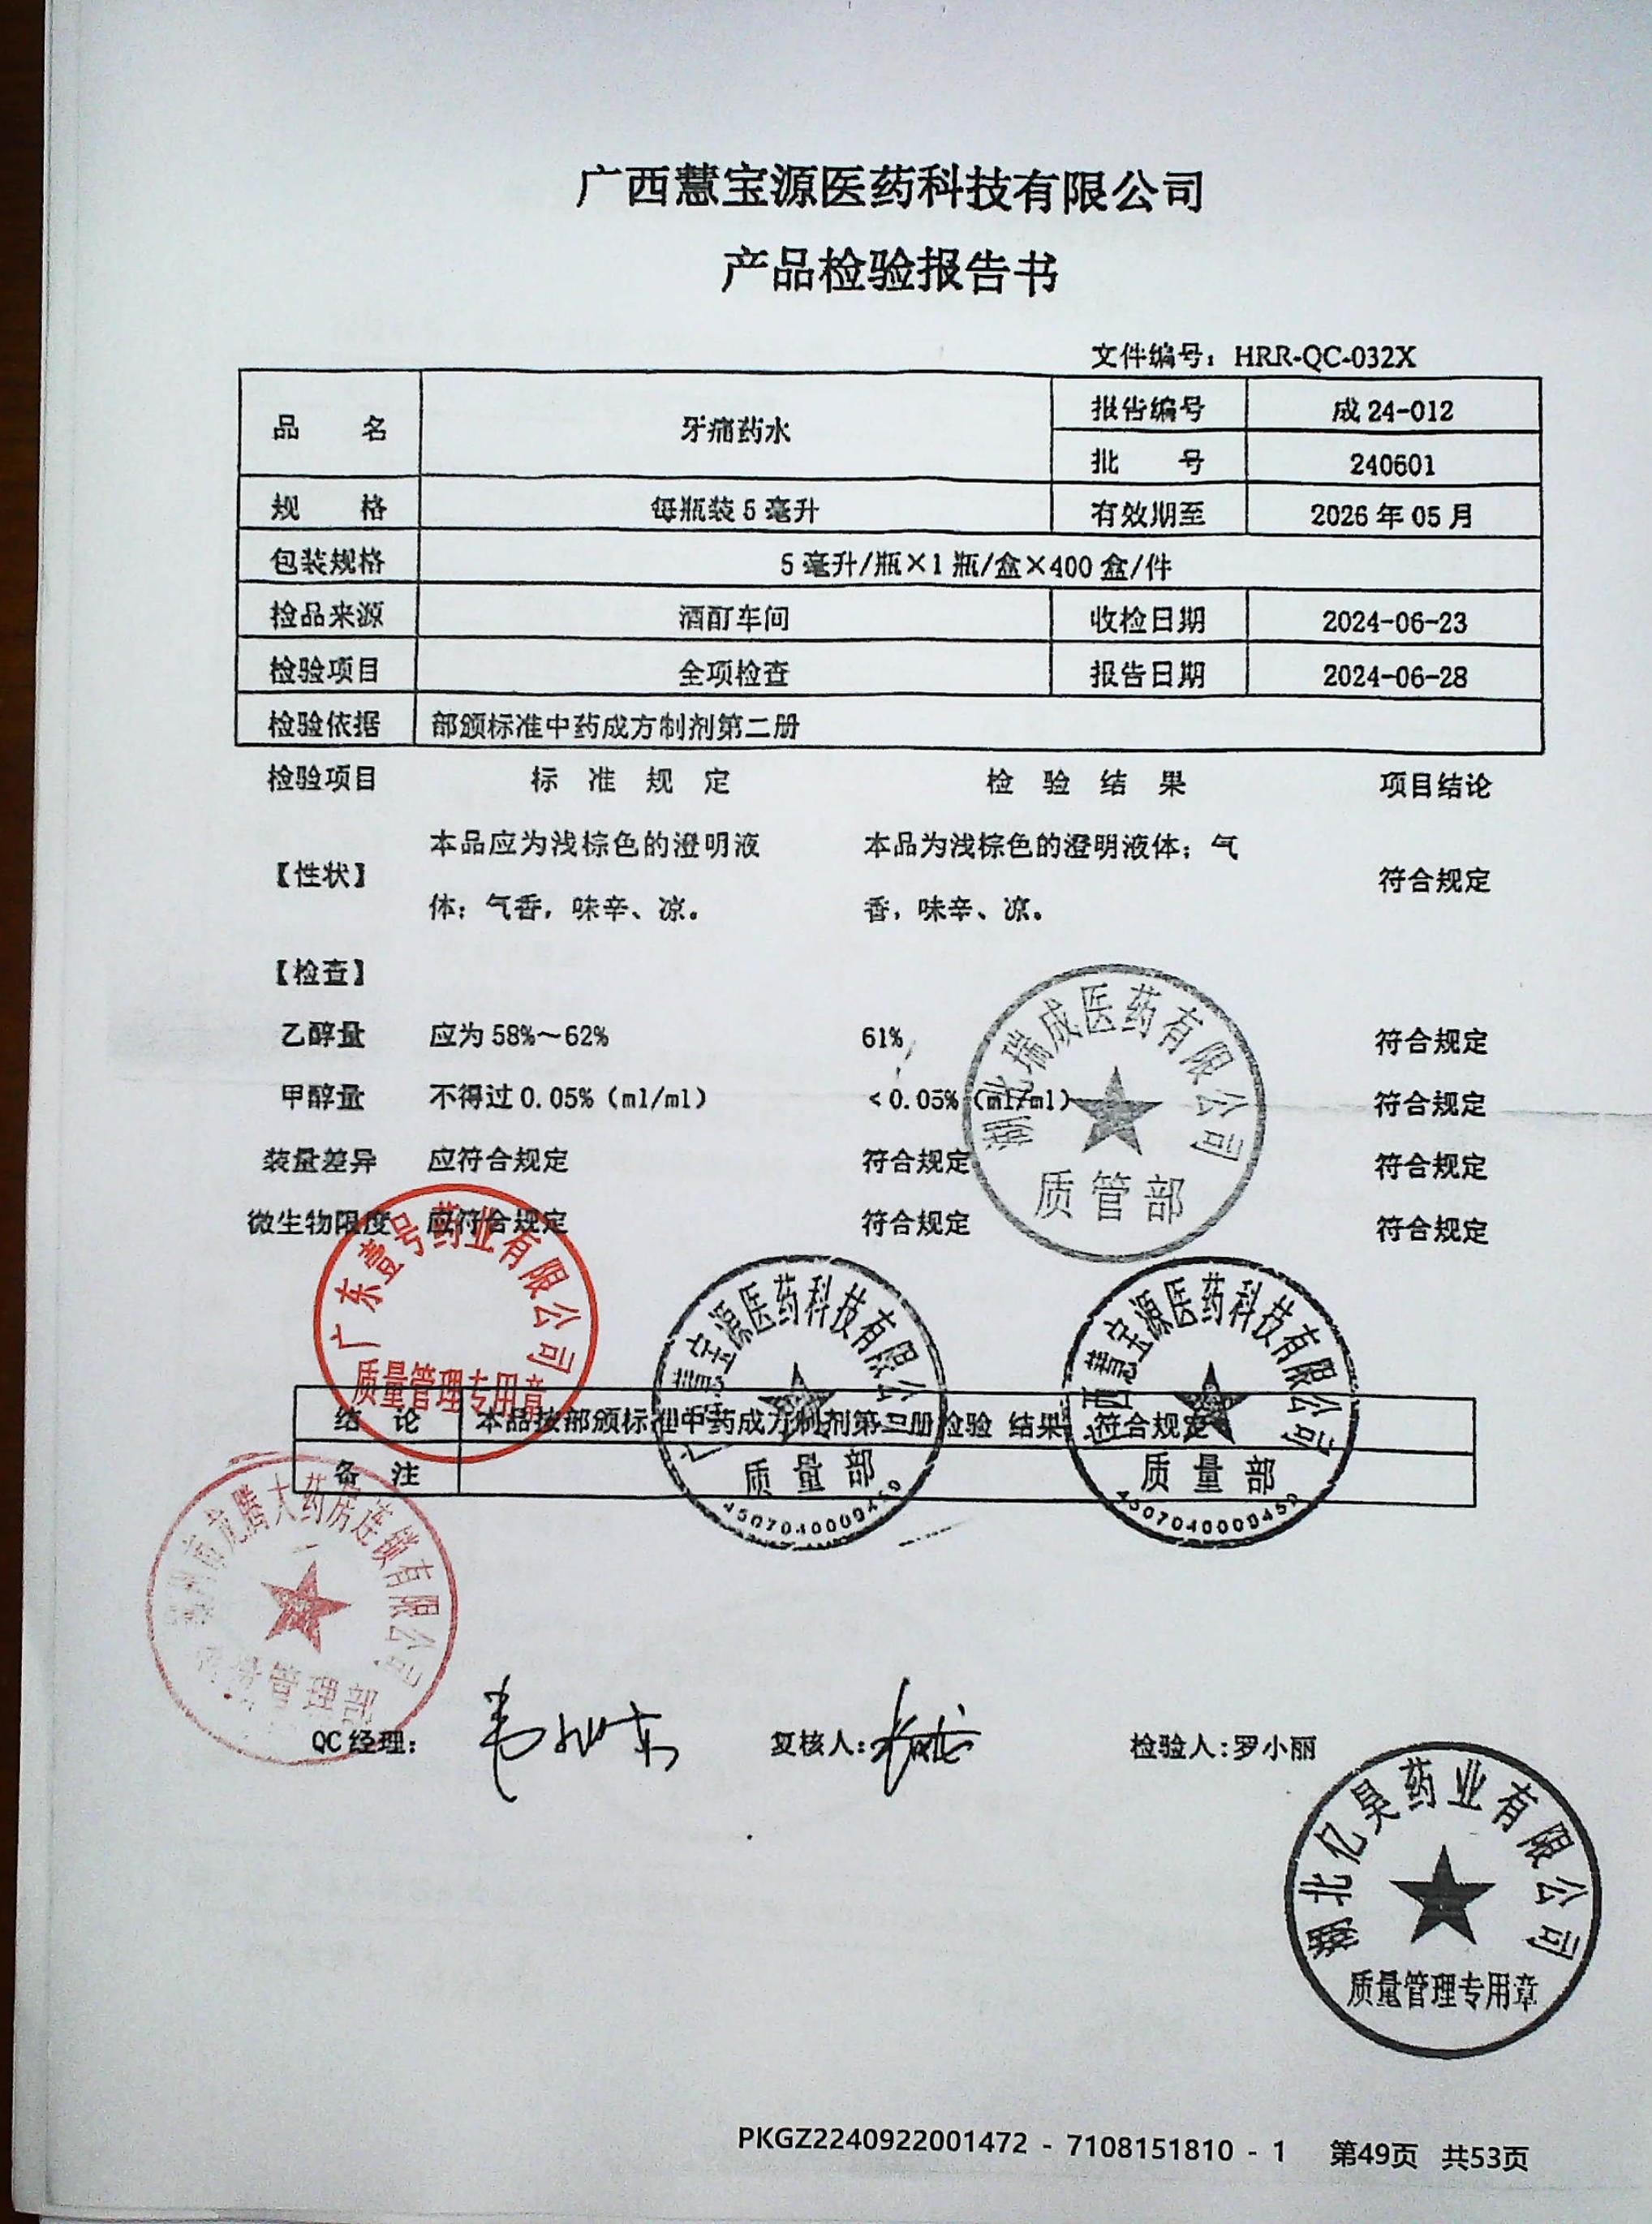 广西慧宝源医药科技有限公司
产品检验报告书
文件编号：HRR-QC-032X
品 名 牙痛药水 报告编号 成24-012
批 号 240601
规 格 每瓶装5毫升 有效期至 2026年05月
包装规格 5毫升/瓶×1瓶/盒×400盒/件
检品来源 酒酊车间 收检日期 2024-06-23
检验项目 全项检查 报告日期 2024-06-28
检验依据 部颁标准中药成方制剂第二册
检验项目 标 准 规 定 检 验 结 果 项目结论
【性状】 本品应为浅棕色的澄明液 本品为浅棕色的澄明液体；气 符合规定
体；气香，味辛、凉。 香，味辛、凉。
【检查】
乙醇量 应为58%～62% 61% 符合规定
甲醇量 不得过0.05%（ml/ml） <0.05%（ml/ml） 符合规定
装量差异 应符合规定 符合规定 符合规定
微生物限度 应符合规定 符合规定 符合规定
湖北瑞成医药有限公司
质管部
广东壹号药业有限公司
质量管理专用章
广西慧宝源医药科技有限公司
质量部
4507040000459
广西慧宝源医药科技有限公司
质量部
4507040000459
结 论 本品按部颁标准中药成方制剂第二册检验 结果 符合规定
备 注
龙腾大药房连锁有限公司
质量管理部
QC经理： 复核人： 检验人：罗小丽
湖北亿昊药业有限公司
质量管理专用章
PKGZ2240922001472 - 7108151810 - 1 第49页 共53页